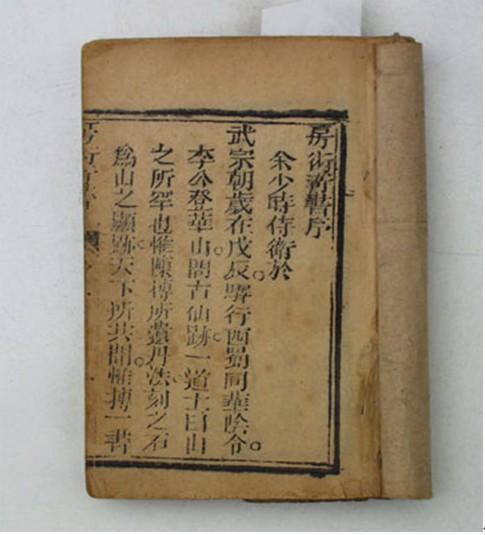 房術奇書序
余少時侍衛於
武宗朝歲在戊辰。驛行西蜀同華陰令。
李公登華山。問古仙跡。一道士曰山
之所罕也惟陳摶所遺丹法刻之石
為山之顯跡。天下所共聞。惟摶一書